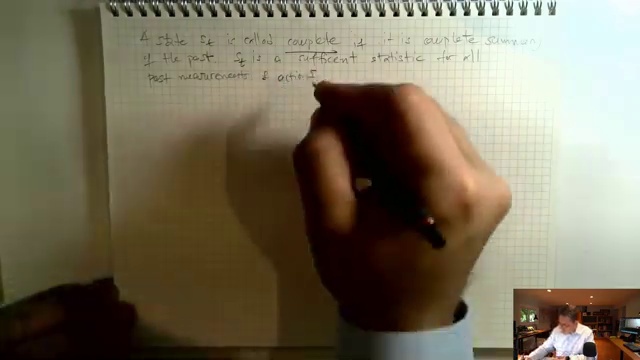 A state St is called complete if it is complete summary
of the past St is a sufficent statistic for all
past mesurements & actions